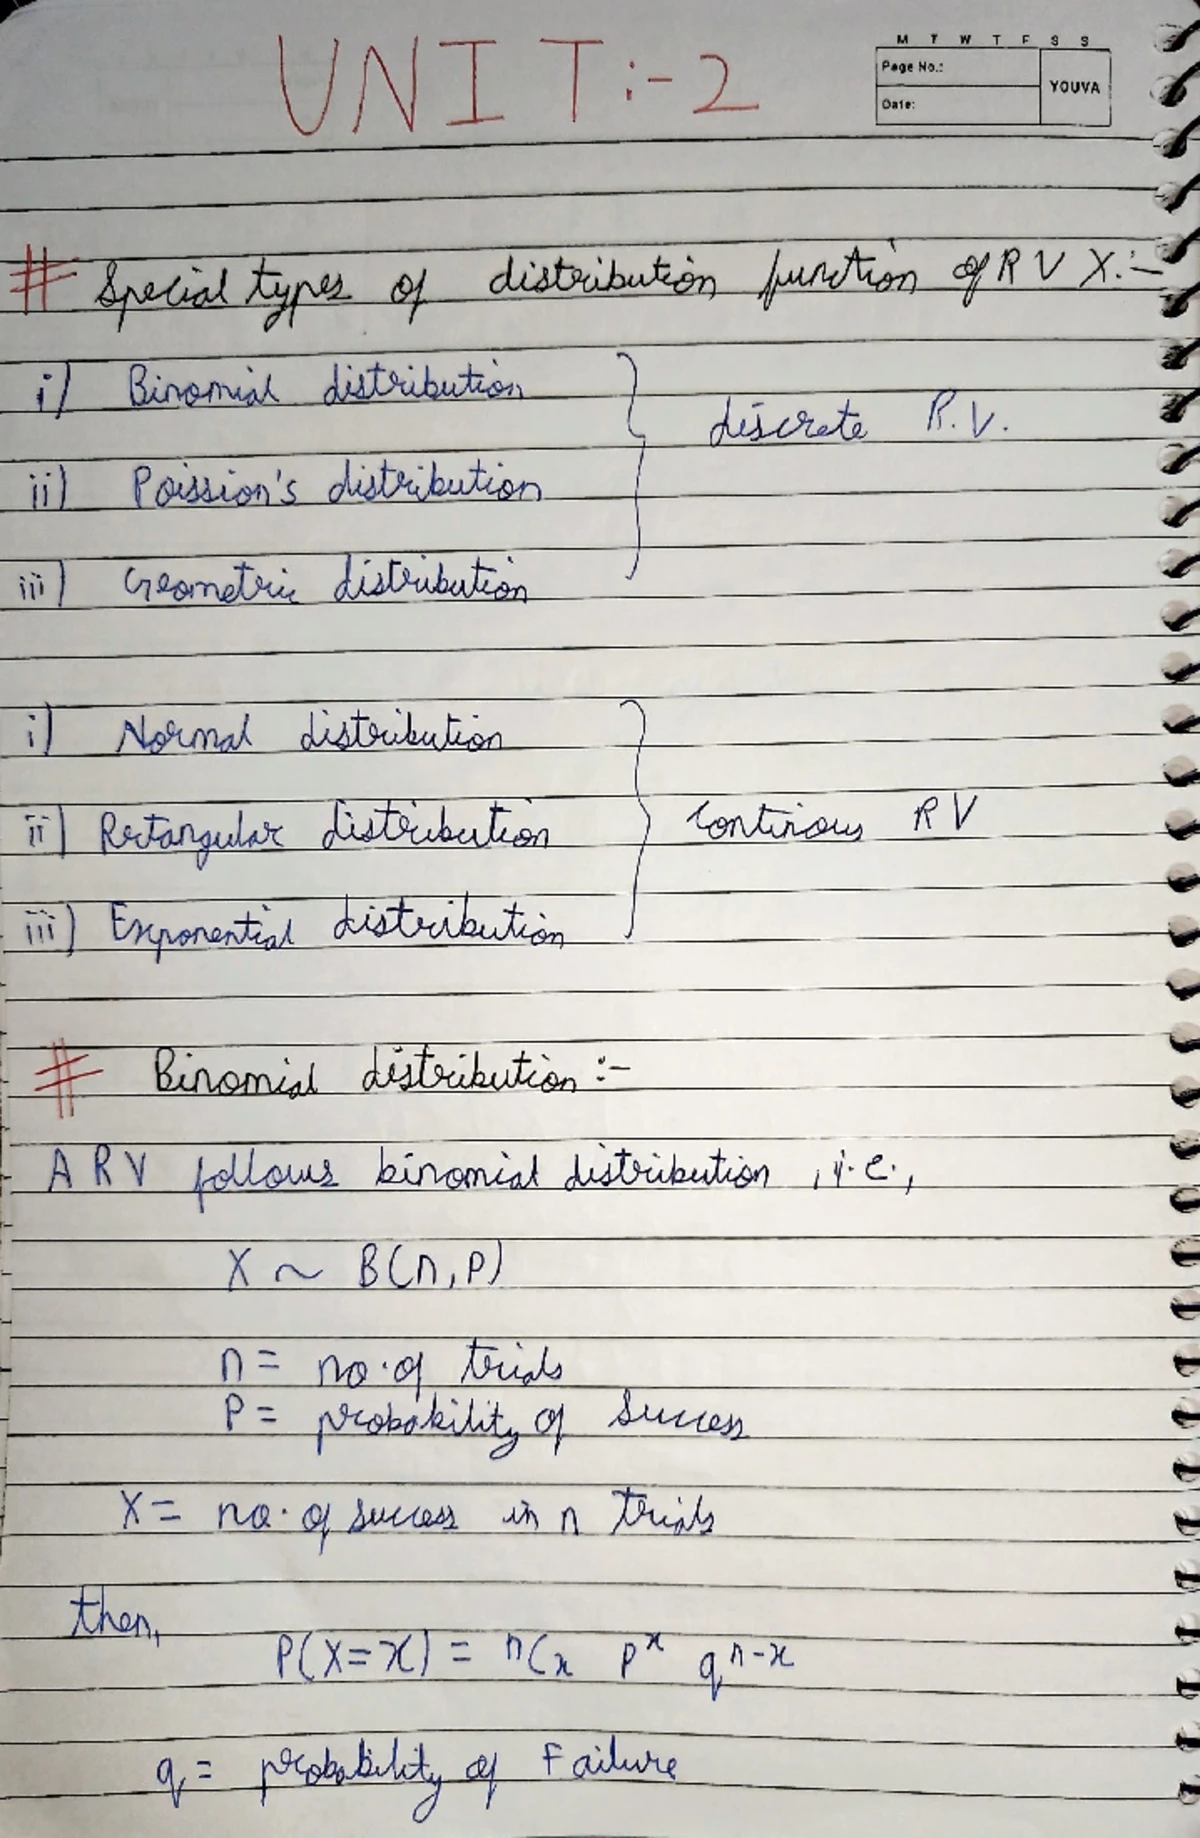 UNIT:-2
M T W T F S S
Page No.:
YOUVA
Date:
# Special types of distribution function of R V X:-
i) Binomial distribution
discrete R.V.
ii) Poission's distribution
iii) Geometric distribution
i) Normal distribution
ii) Rectangular distribution
continous RV
iii) Exponential distribution
# Binomial distribution :-
A RV follows binomial distribution , i.e.,
X ~ B(n,P)
n = no. of trials
P = probability of success
X = no. of success in n trials
then,
P(X=x) = ⁿCₓ pˣ qⁿ⁻ˣ
q = probability of Failure